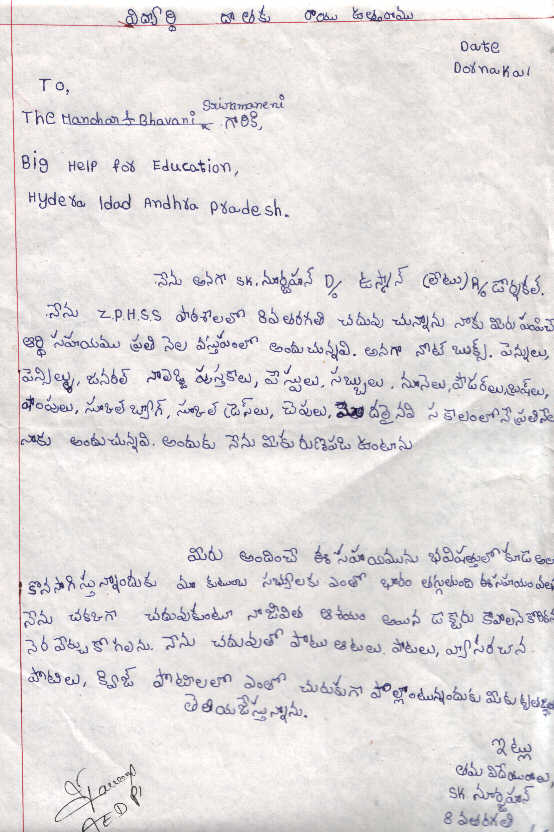 విద్యార్థి దాతకు రాయు ఉత్తరము
Date
Dornakal
To,
Srivamaneni
The Manohar + Bhavani గారికి,
Big Help for Education,
Hydera Idad Andhra pradesh.
నేను అనగా SK. నూర్జహాన్ D/o ఉస్మాన్ (లేటు) R/o డోర్నకల్.
నేను Z.P.H.S.S పాఠశాలలో 8వ తరగతి చదువు చున్నాను నాకు మీరు పంపిచే
ఆర్థి సహయము ప్రతి నెల వస్తురూపంలో అందుచున్నవి. అనగా నోట్ బుక్స్, పెన్నులు,
పెన్సిల్లు, జనరల్ నాలెడ్జి పుస్తకాలు, పేస్టులు, సబ్బులు, నూనెలు, పౌడర్‌లు, బ్రష్‌లు,
షాంపులు, స్కూల్ బ్యాగ్, స్కూల్ డ్రెస్‌లు, చెప్పులు, మొదలైనవి సకాలంలోనే ప్రతినెల
నాకు అందుచున్నవి. అందుకు నేను మీకు రుణపడి ఉంటాను
మీరు అందించే ఈ సహాయమును భవిషత్తులో కూడ అలా
కొనసాగిస్తున్నాందుకు మా కుటుంబ సభ్యులకు ఎంతో భారం తగ్గుతుంది ఈ సహాయం వలన
నేను చకగా చదువుకుంటూ నా జీవిత ఆశయం అయిన డాక్టరు కావాలనె కోరికను
నెరవేర్చుకోగలను. నేను చదువుతో పాటు ఆటలు. పాటలు, వ్యాసరచన
పోటిలు, క్విజ్ పోటిలలో ఎంతో చురుకుగా పాల్గొంటున్నందుకు మీకు కృతజ్ఞత
తెలియజేస్తున్నాను.
ఇట్లు
తమ విదేయురాలు,
SK నూర్జహాన్
8 వ తరగతి
AEDPI